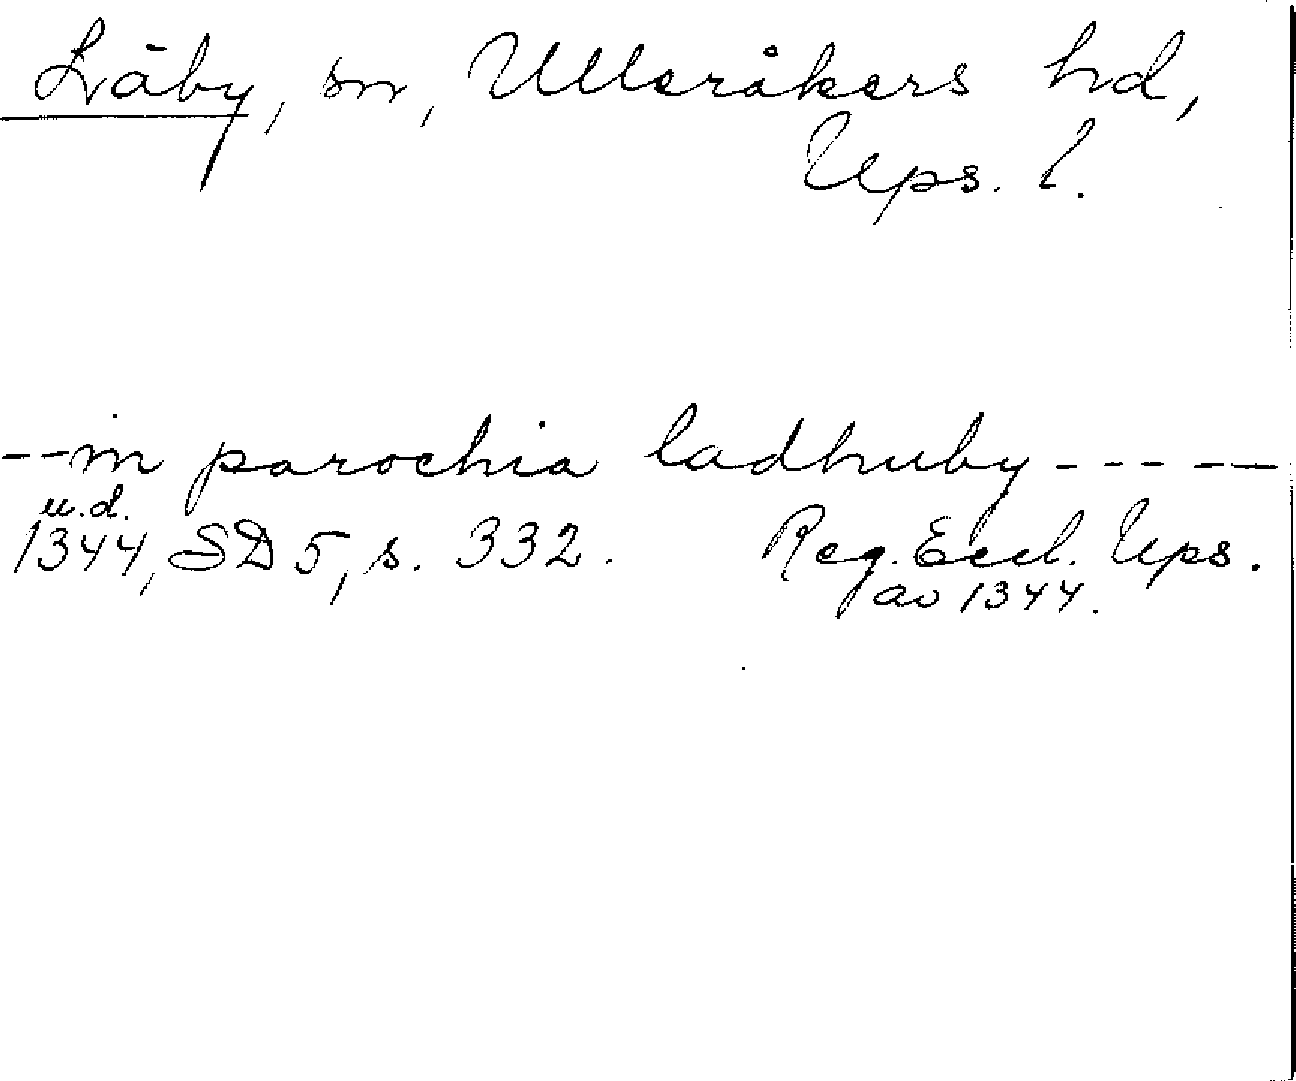 Läby, sn, Ulleråkers hd,
Ups. l.
--in parochia ladhuby-----
u.d.
1344, SD 5, s. 332. Reg. Eccl. Ups.
av 1344.